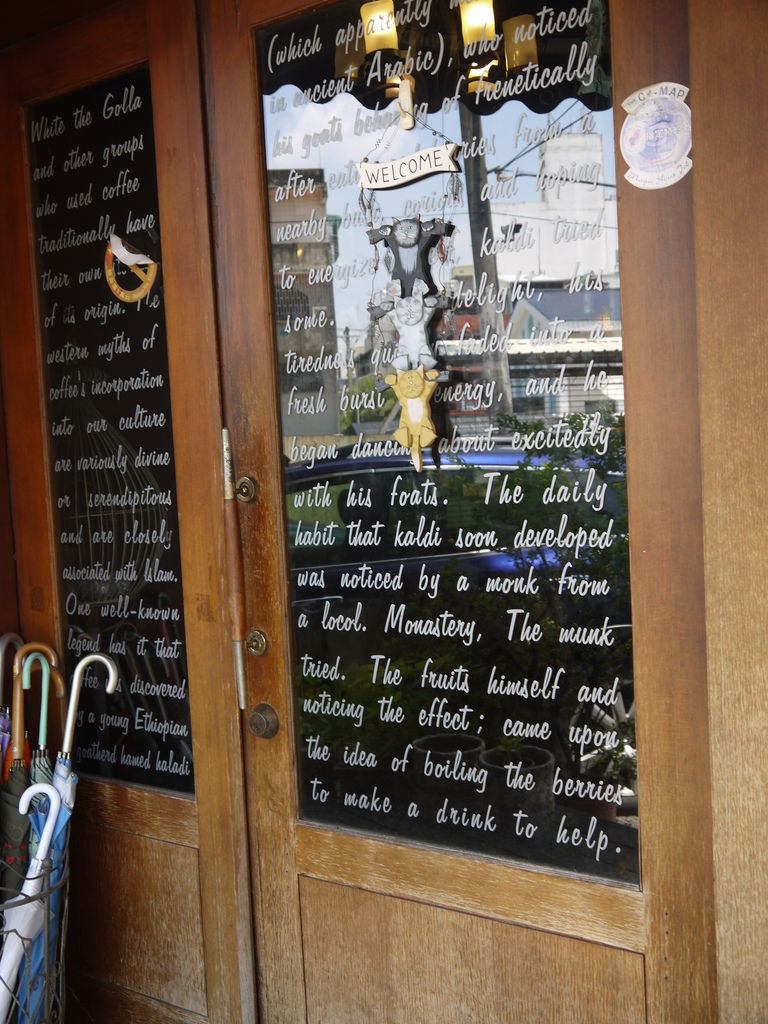 White the Golla
and other groups
who used coffee
traditionally have
their own
of its origin. The
western myths of
coffee's incorporation
into our culture
are variously divine
or serendipitous
and are closely
associated with Islam.
One well-known
legend has it that
was discovered
by a young Ethiopian
goatherd named haladi
(which apparently
in ancient Arabic), who noticed
his goats of frenetically
after from a
nearby and hoping
to energize kaldi tried
some. delight, his
tiredness faded into a
fresh burst energy, and he
began dancing about excitedly
with his foats. The daily
habit that kaldi soon developed
was noticed by a monk from
a locol. Monastery, The munk
tried. The fruits himself and
noticing the effect; came upon
the idea of boiling the berries
to make a drink to help.
WELCOME
C-MAP